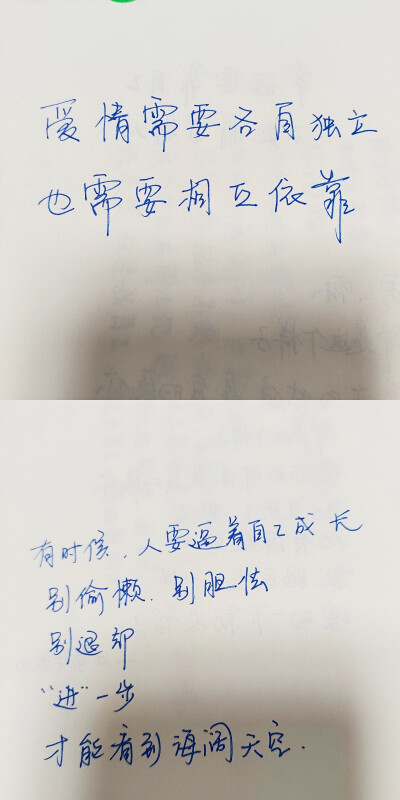 爱情需要各自独立
也需要相互依靠
有时候，人要逼着自己成长
别偷懒．别胆怯
别退却
“进”一步
才能看到海阔天空．